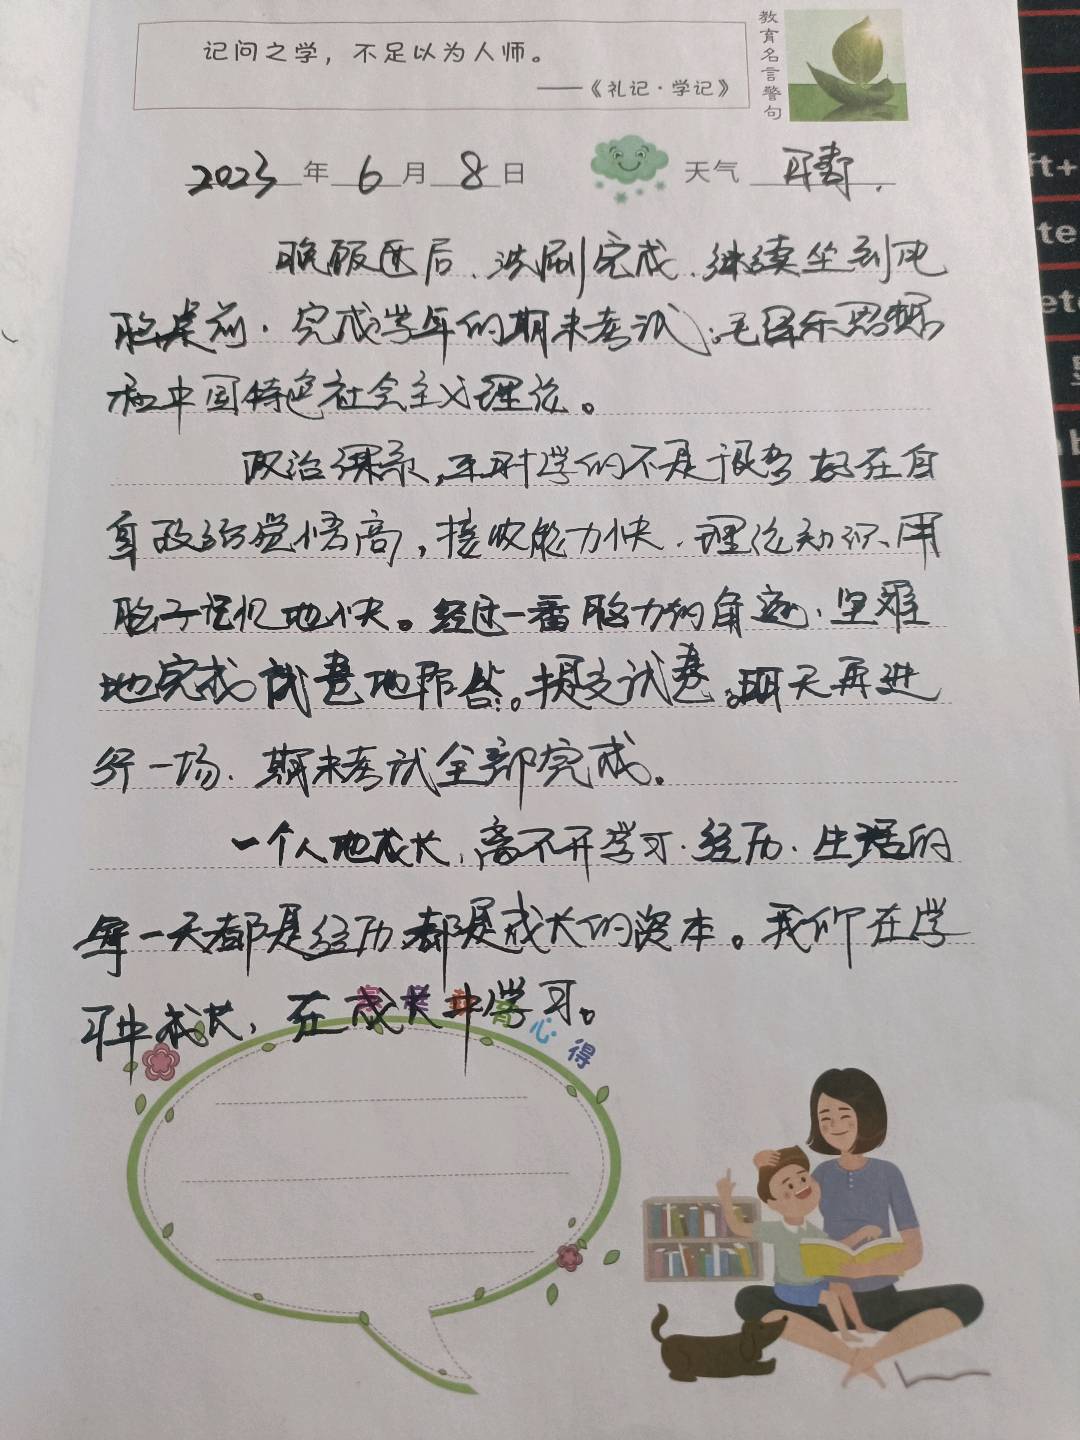 记问之学，不足以为人师。
——《礼记·学记》
教育名言警句
2023年6月8日 天气 晴.
晚饭过后、洗刷完成、继续坐到电
脑桌前.完成学年的期末考试:毛泽东思想
和中国特色社会主义理论。
政治课系,平时学的不是很多 好在自
身政治觉悟高,接收能力快.理论知识、用
脑子记忆地快。经过一番脑力的角逐.坚难
地完成试卷地作答。提交试卷。明天再进
行一场.期末考试全部完成。
一个人地成长,离不开学习.经历.生活的
每一天都是经历 都是成长的资本。我们在学
习中成长,在成长中学习。
家庭教育心得